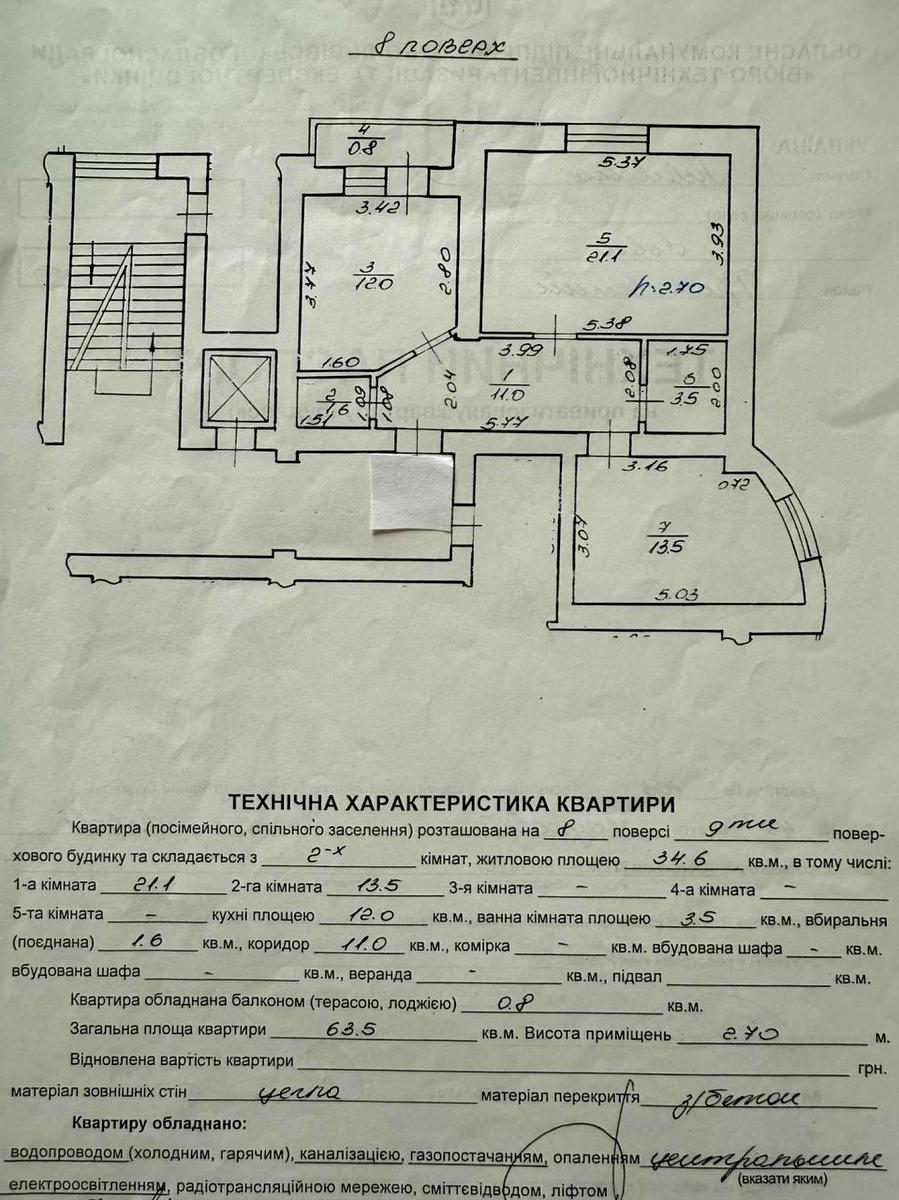 8 поверх
4
0.8
5.37
3.42
3.93
5
21.1
3
12.0
2.80
3.47
h=2.70
5.38
1.60
3.99
1.75
2
1.6
1.51
1.09
1.08
2.04
1
11.0
2.08
6
3.5
2.00
5.77
3.16
0.72
7
13.5
3.07
5.03
ТЕХНІЧНА ХАРАКТЕРИСТИКА КВАРТИРИ
Квартира (посімейного, спільного заселення) розташована на 8 поверсі 9ти повер-
хового будинку та складається з 2-х кімнат, житловою площею 34.6 кв.м., в тому числі:
1-а кімната 21.1 2-га кімната 13.5 3-я кімната – 4-а кімната –
5-та кімната – кухні площею 12.0 кв.м., ванна кімната площею 3.5 кв.м., вбиральня
(поєднана) 1.6 кв.м., коридор 11.0 кв.м., комірка – кв.м. вбудована шафа – кв.м.
вбудована шафа – кв.м., веранда – кв.м., підвал кв.м.
Квартира обладнана балконом (терасою, лоджією) 0.8 кв.м.
Загальна площа квартири 63.5 кв.м. Висота приміщень 2.70 м.
Відновлена вартість квартири грн.
матеріал зовнішніх стін цегла матеріал перекриття з/бетон
Квартиру обладнано:
водопроводом (холодним, гарячим), каналізацією, газопостачанням, опаленням центральним
(вказати яким)
електроосвітленням, радіотрансляційною мережею, сміттєвідводом, ліфтом